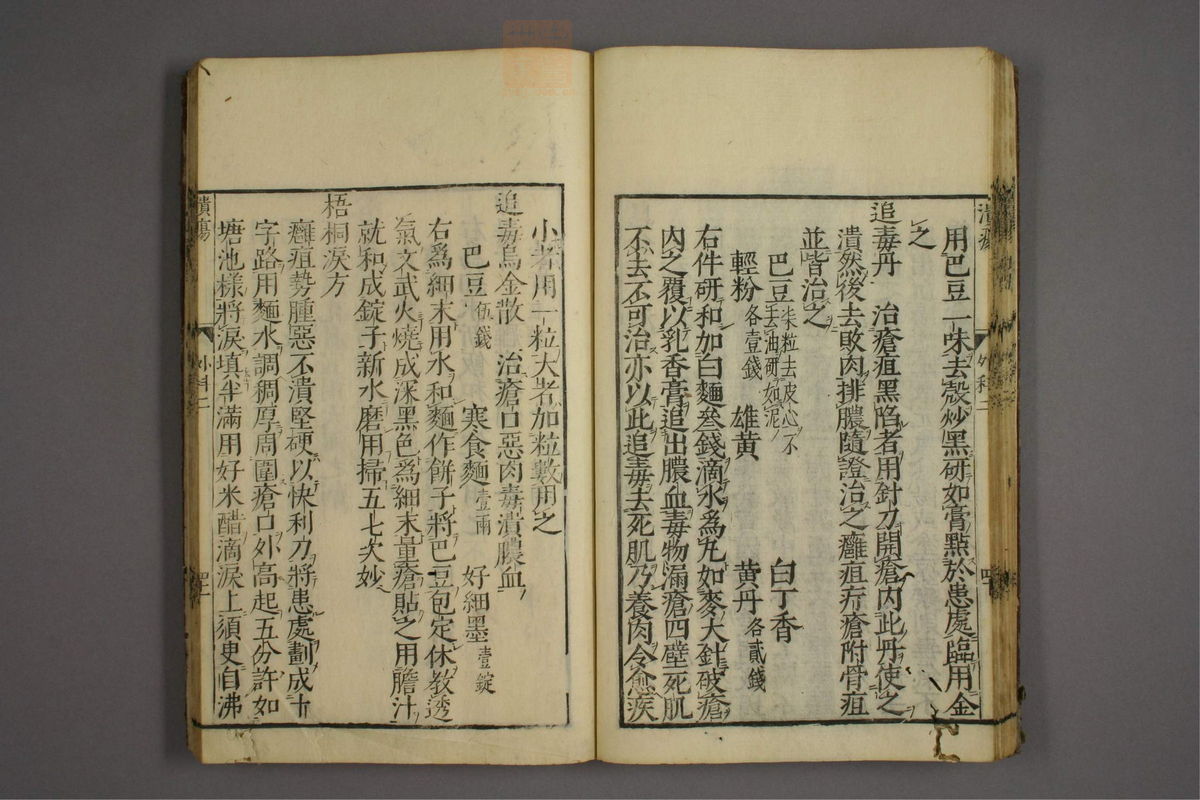 用巴豆一味去殼炒黑研如膏㸃於患處臨用金
之
追毒丹　治瘡疽黑陷者用針刀開瘡内此丹使之
潰然後去敗肉排膿隨證治之癰疽疔瘡附骨疽
並皆治之
巴豆柒粒去皮心不去油研如泥　白丁香
輕粉各壹錢　雄黄　黄丹各貳錢
右件研和加白麵叁錢滴水為丸如麥大針破瘡
内之覆以乳香膏追出膿血毒物漏瘡四壁死肌
不去不可治亦以此追毒去死肌乃養肉令愈疾
小者用一粒大者加粒數用之
追毒烏金散　治瘡口惡肉毒潰膿血
巴豆伍錢　寒食麵壹兩　好細墨壹錠
右爲細末用水和麵作餅子將巴豆包定休教透
氣文武火燒成深黑色爲細末量瘡貼之用膽汁
就和成錠子新水磨用掃五七次妙
梧桐淚方
癰疽勢腫惡不潰堅硬以快利刀將患處劃成十
字路用麵水調稠厚周圍瘡口外高起五分許如
塘池樣將淚填半滿用好米醋滴淚上須臾自沸
潰瘍
外科二